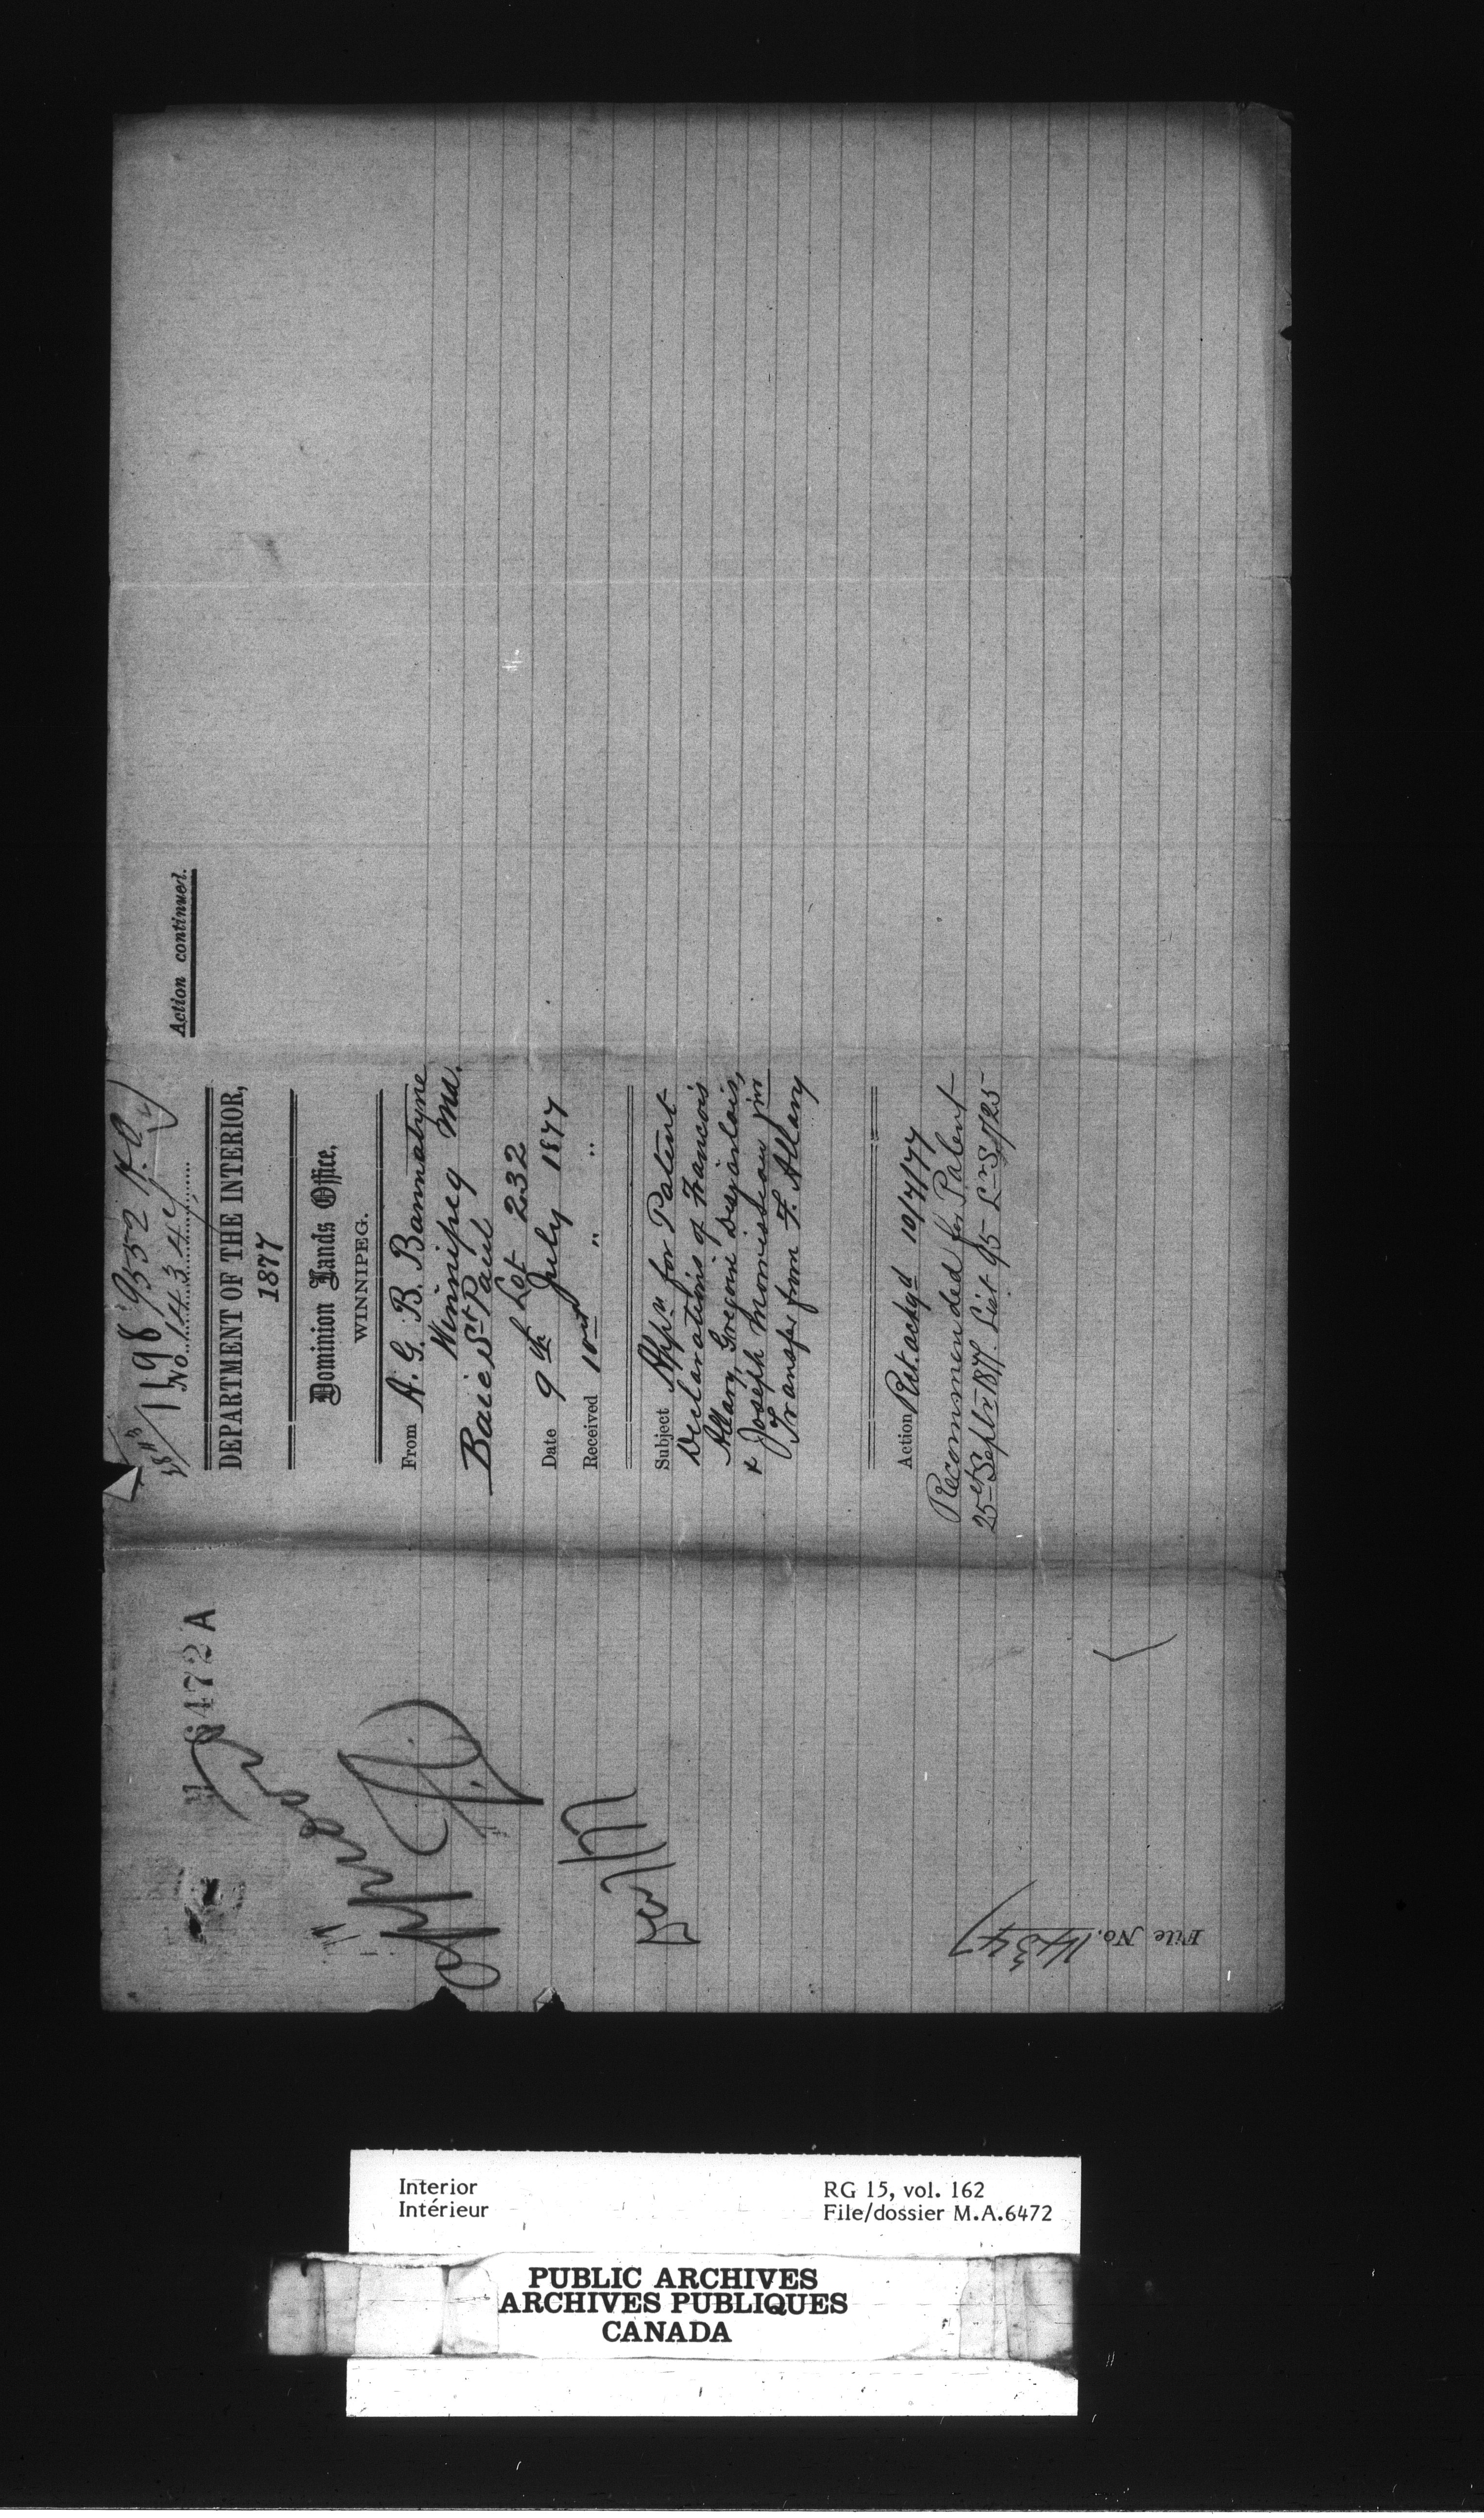 1198 9552 H.O.
No. 1434
DEPARTMENT OF THE INTERIOR,
1877
Dominion Lands Office,
WINNIPEG.
From A. G. B. Bannatyne
Winnipeg Ma.
Baie St Paul
Lot 232
Date 9th July 1877
Received 10th " "
Subject Appn for Patent
Declarations of Francois
Allary, Gregoire Desjarlais,
& Joseph Morrisseau jnr
Transfer from F. Allary
Action Ret. ackgd 10/7/77
Recommended for Patent
25th Septr 1877. List 95
Action continued.
6472 A
File No. 1434
Interior
Intérieur
RG 15, vol. 162
File/dossier M.A.6472
PUBLIC ARCHIVES
ARCHIVES PUBLIQUES
CANADA